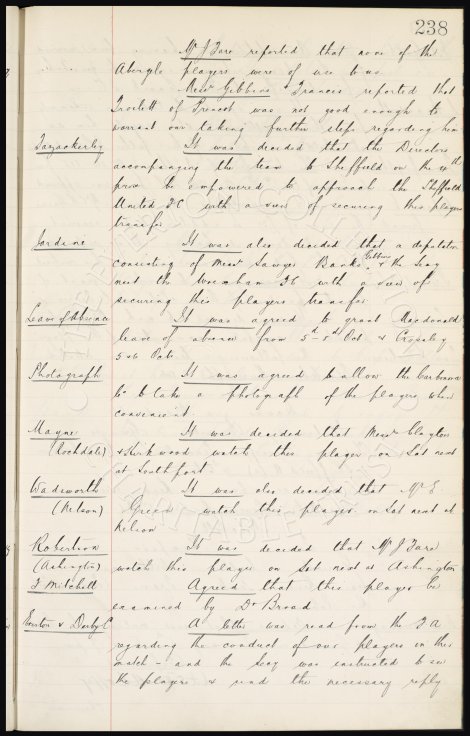 238
Mr J Fare reported that none of the
Abergele players were of use to us
Messrs Gibbins & Frances reported that
of Prescot was not good enough to
warrant our taking further steps regarding him
It was decided that the Directors
accompanying the team to Sheffield on the
prox be empowered to approach the Sheffield
United FC with a view of securing this players
transfer
Jordine
It was also decided that a deputation
consisting of Messrs Sawyer Banks Gibbins & the Secy
meet the FC with a view of
securing this players transfer
Leave of Absence
It was agreed to grant Macdonald
leave of absence from Oct & Crossley
5 & 6 Oct
Photograph
It was agreed to allow the
to take a photograph of the players when
convenient
Mayne
It was decided that Messrs Clayton
(Rochdale)
& Kirkwood watch this player on Sat next
at Southport
Wadsworth
It was also decided that Mr E
(Nelson)
Green watch this player on Sat next at
Nelson
Robertson
It was decided that Mr J Fare
(Ashington)
watch this player on Sat next at Ashington
F Mitchell
Agreed that this player be
examined by Dr Broad
Everton & Derby C
A letter was read from the F A
regarding the conduct of our players in this
match - and the Secy was instructed to see
the players & send the necessary reply